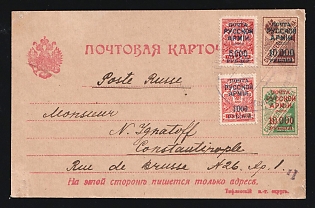 ПОЧТОВАЯ КАРТОЧ
ПОЧТА РУССКОЙ АРМІИ 5.000 РУБЛЕЙ
ПОЧТА РУССКОЙ АРМІИ 10.000 РУБЛЕЙ
Poste Russe
Monsieur
ПОЧТА РУССКОЙ АРМІИ 1000 РУБЛЕЙ
ПОЧТА РУССКОЙ АРМІИ 10.000 РУБЛЕЙ
N. Ignatoff
Constantinople
Rue de Brusse N26. Ap. 1.
На этой сторонѣ пишется только адресъ.